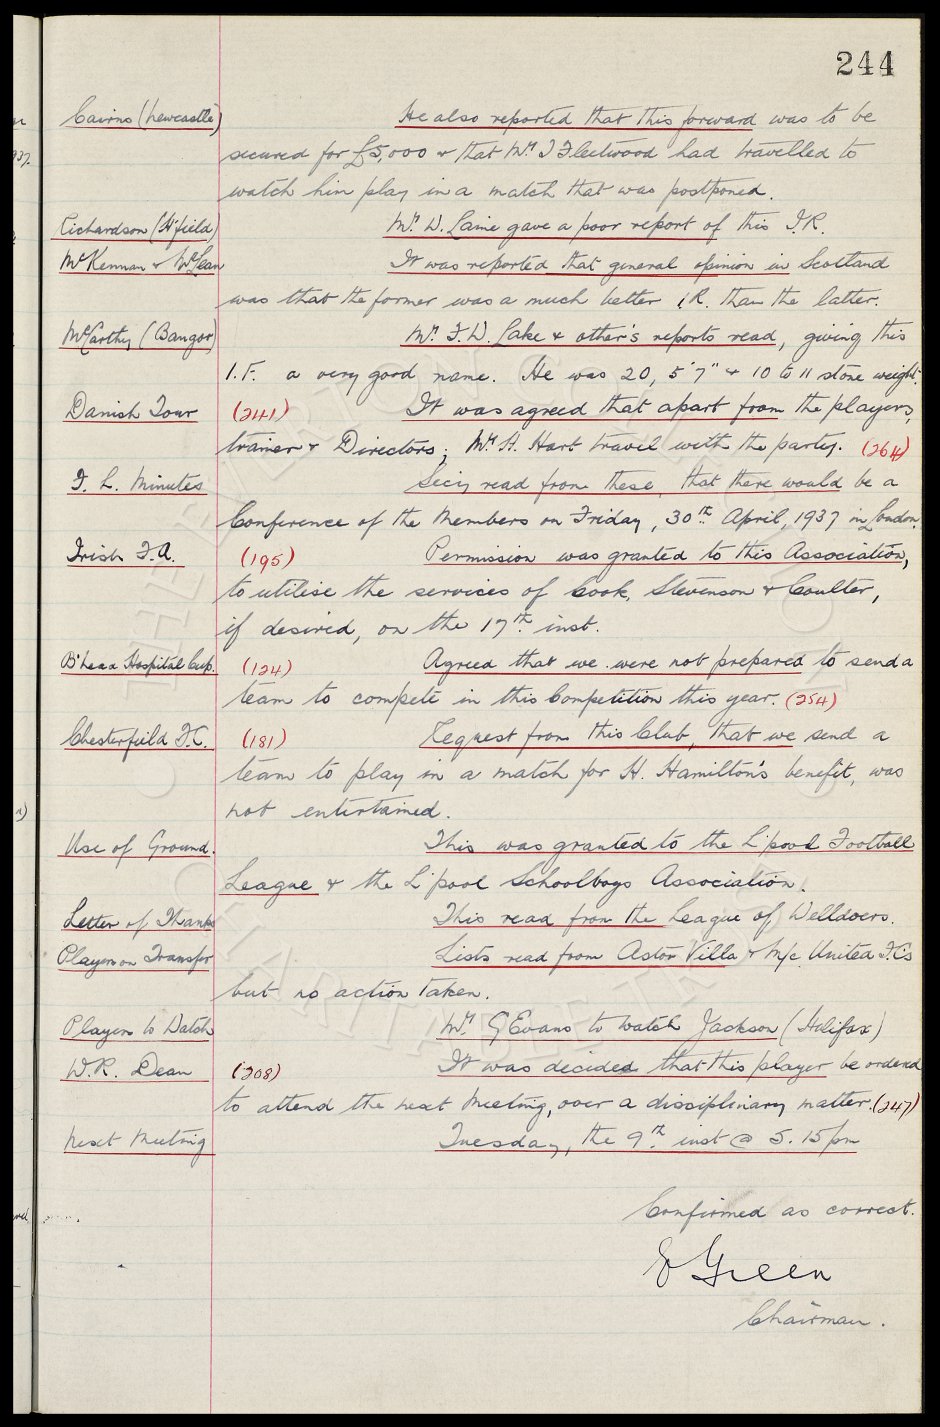 244
Cairns (Newcastle) He also reported that this forward was to be
secured for £5,000 & that Mr. J Fleetwood had travelled to
watch him play in a match that was postponed.
Richardson (H'field) Mr. W. Laine gave a poor report of this I.R.
McKennan & McLean It was reported that general opinion in Scotland
was that the former was a much better I.R. than the latter.
McCarthy (Bangor) Mr. F.W. Lake & other's reports read, giving this
I.F. a very good name. He was 20, 5' 7" & 10 to 11 stone weight.
Danish Tour (241) It was agreed that apart from the players,
trainer & Directors, Mr. A. Hart travel with the party. (264)
F. L. Minutes Secy read from these, that there would be a
Conference of the Members on Friday, 30th. April, 1937 in London.
Irish F.A. (195) Permission was granted to this Association,
to utilise the services of Cook, Stevenson & Coulter,
if desired, on the 17th. inst.
B'head Hospital Cup. (124) Agreed that we were not prepared to send a
team to compete in this Competition this year. (254)
Chesterfield F.C. (181) Request from this Club, that we send a
team to play in a match for H. Hamilton's benefit, was
not entertained.
Use of Ground. This was granted to the L'pool Football
League & the L'pool Schoolboys Association.
Letter of Thanks This read from the League of Welldoers.
Players on Transfer Lists read from Aston Villa & M/c. United F.Cs
but no action taken.
Players to Watch Mr. G Evans to watch Jackson (Halifax)
W.R. Dean (208) It was decided that this player be ordered
to attend the next Meeting, over a dissiplinary matter. (247)
Next Meeting Tuesday, the 9th inst @ 5.15pm
Confirmed as correct.
E Green
Chairman.